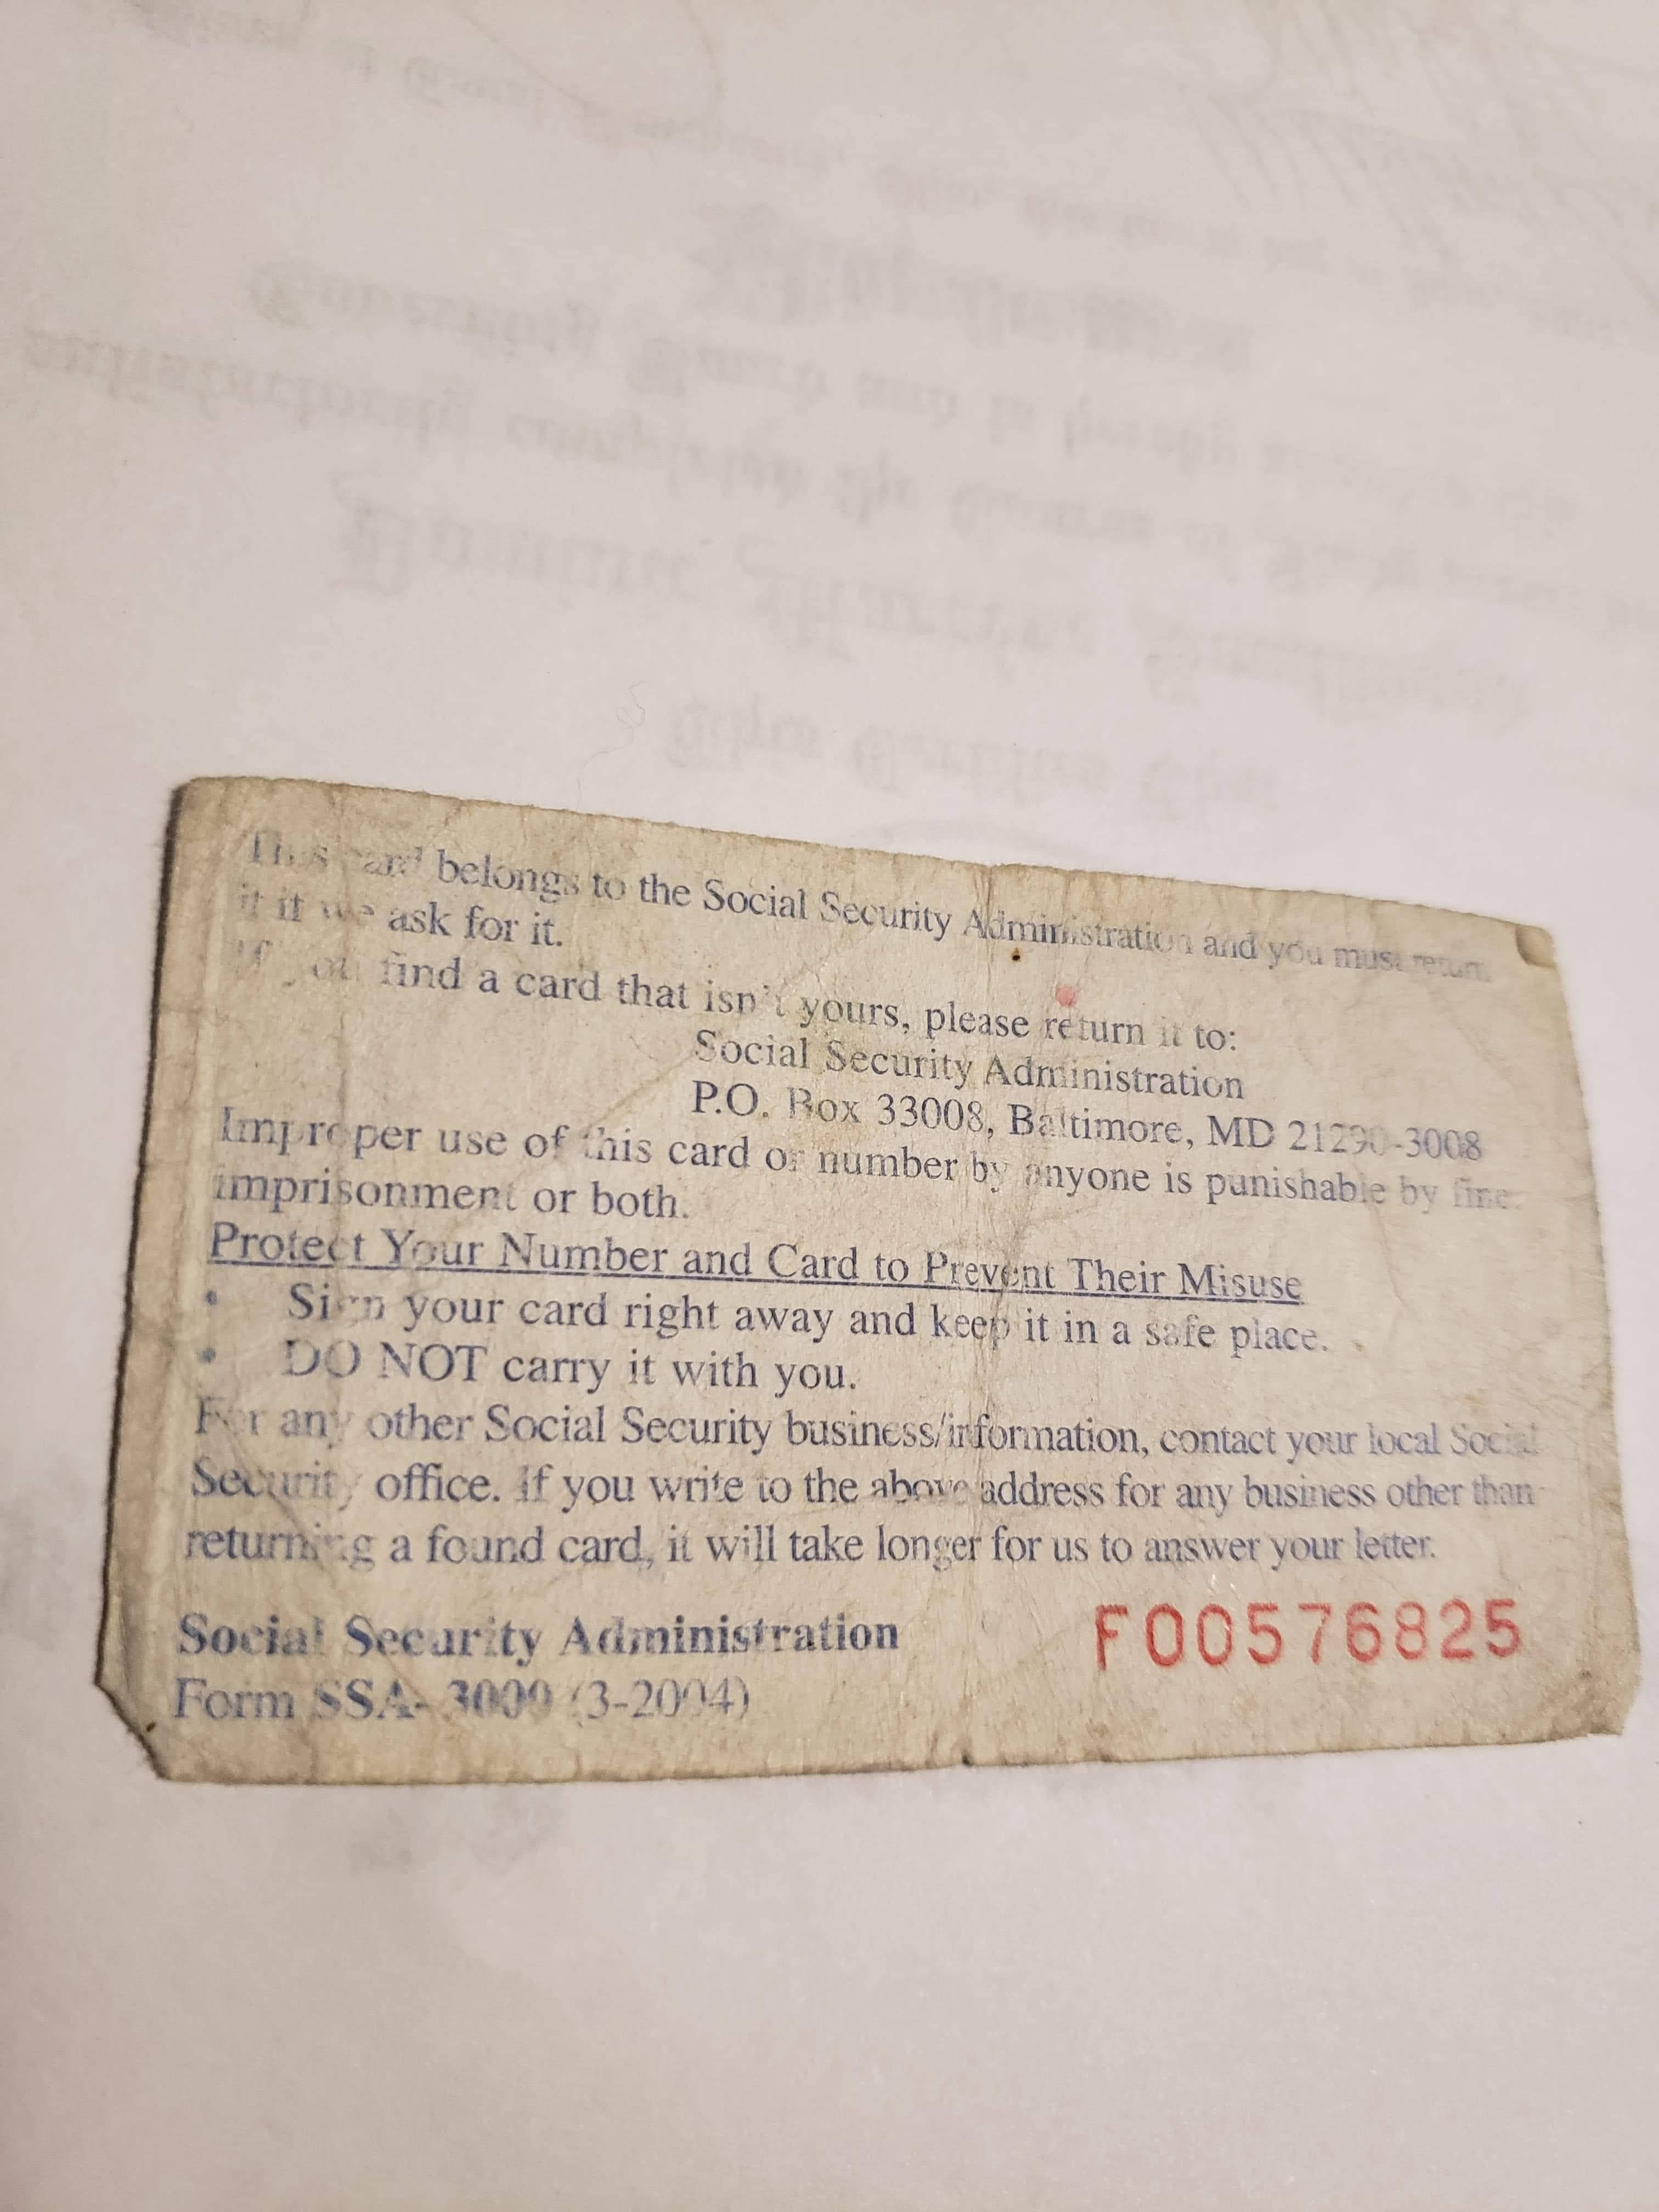 This card belongs to the Social Security Administration and you must return
it if we ask for it.
If you find a card that isn't yours, please return it to:
Social Security Administration
P.O. Box 33008, Baltimore, MD 21290-3008
Improper use of this card or number by anyone is punishable by fine,
imprisonment or both.
Protect Your Number and Card to Prevent Their Misuse
• Sign your card right away and keep it in a safe place.
• DO NOT carry it with you.
For any other Social Security business/information, contact your local Social
Security office. If you write to the above address for any business other than
returning a found card, it will take longer for us to answer your letter.
Social Security Administration
Form SSA-3000 (3-2004)
F00576825